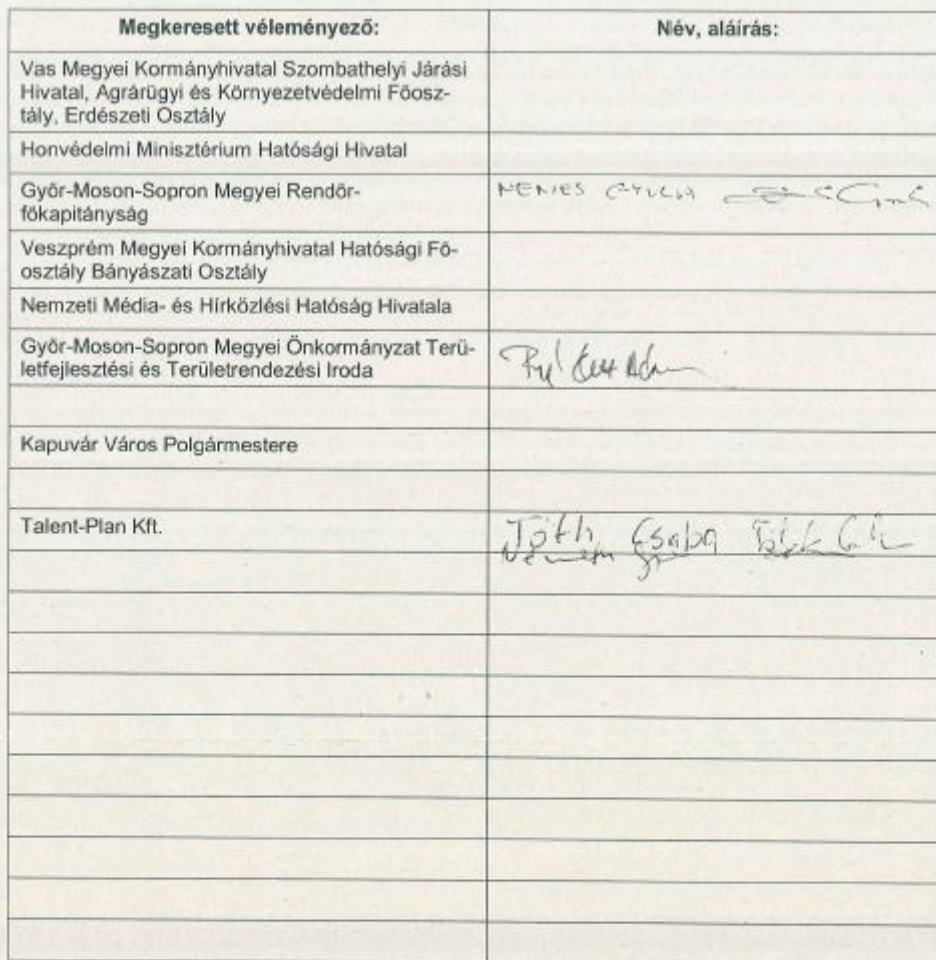 Megkeresett véleményező:
Név, aláírás:
Vas Megyei Kormányhivatal Szombathelyi Járási
Hivatal, Agrárügyi és Környezetvédelmi Főosz-
tály, Erdészeti Osztály
Honvédelmi Minisztérium Hatósági Hivatal
Győr-Moson-Sopron Megyei Rendőr-
főkapitányság
Veszprém Megyei Kormányhivatal Hatósági Fő-
osztály Bányászati Osztály
Nemzeti Média- és Hírközlési Hatóság Hivatala
Győr-Moson-Sopron Megyei Önkormányzat Terü-
letfejlesztési és Területrendezési Iroda
Kapuvár Város Polgármestere
Talent-Plan Kft.
Tóth Csaba